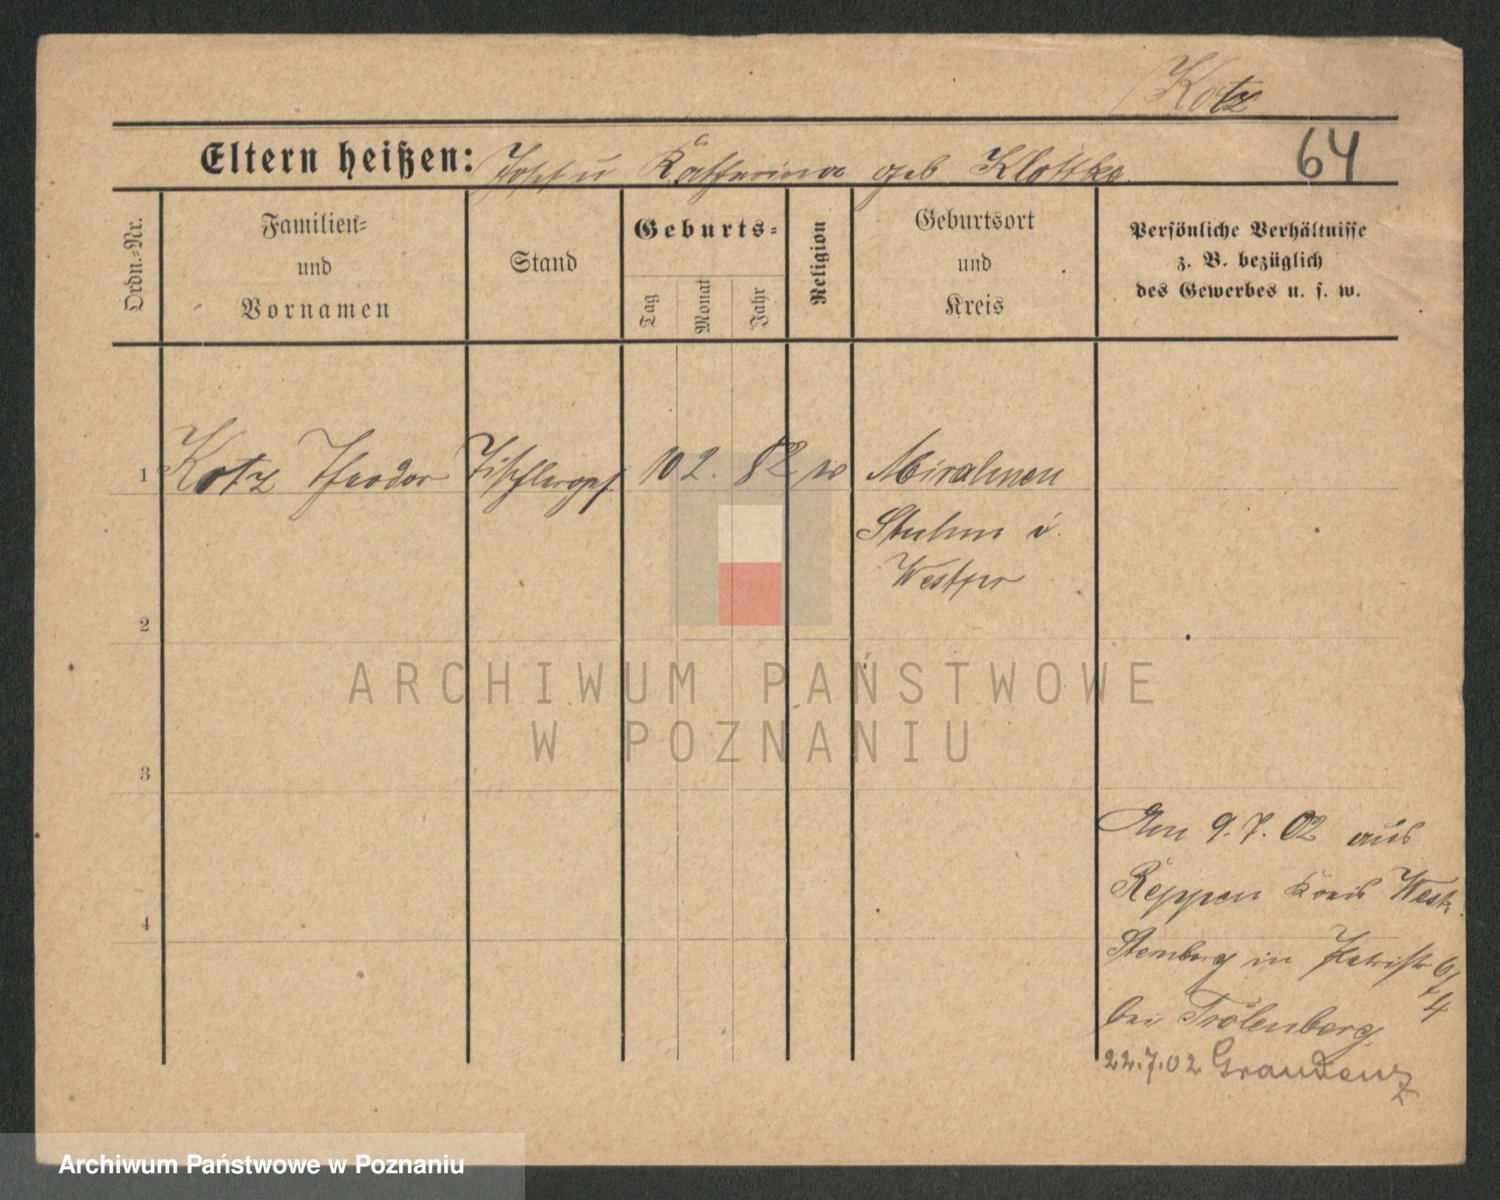 Kotz
64
Eltern heißen: Josef u Katharina geb Klottke.
Ordn.-Nr.
Familien-
und
Vornamen
Stand
Geburts-
Tag
Monat
Jahr
Religion
Geburtsort
und
Kreis
Persönliche Verhältnisse
z. B. bezüglich
des Gewerbes u. s. w.
1 Kotz Theodor Tischlerges. 10 2. 82 Mirahnen
Stuhm i.
Westpr
2
3
4
Am 9.7.02 aus
Reppen Kreis West-
Sternberg in
bei Trölenberg
22.7.02 Graudenz
ARCHIWUM PAŃSTWOWE
W POZNANIU
Archiwum Państwowe w Poznaniu